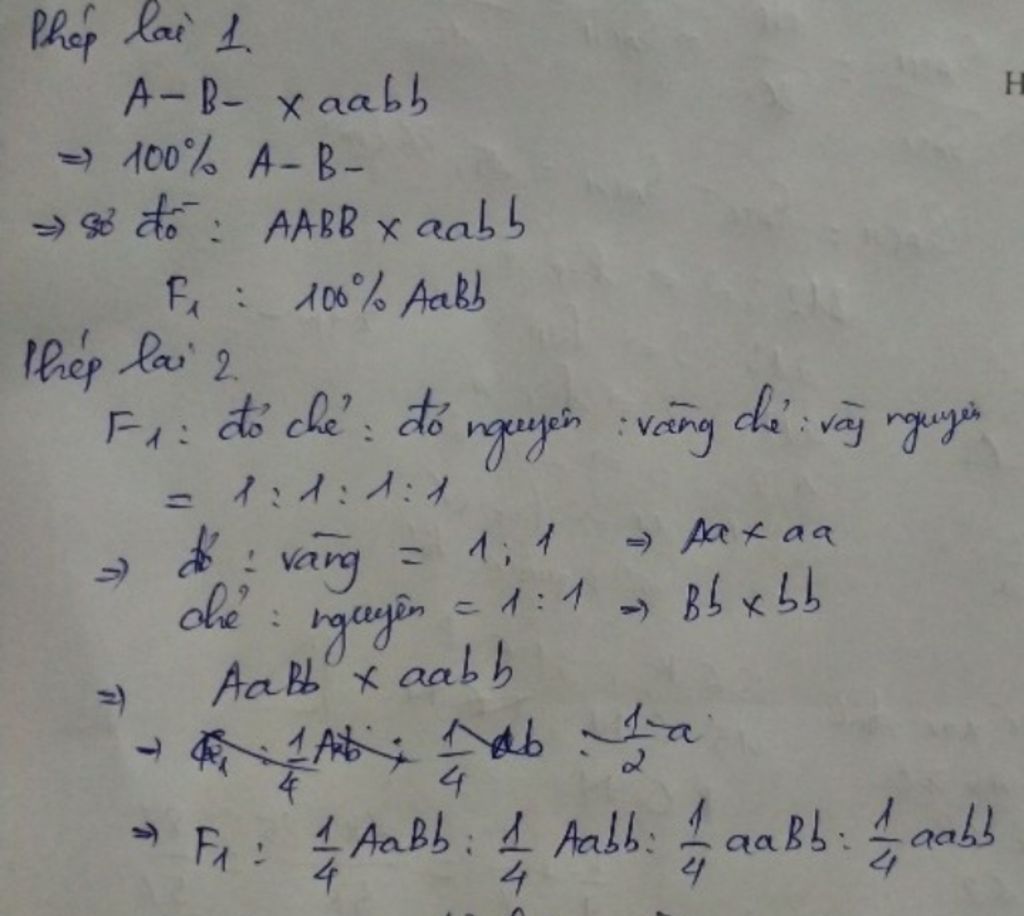 Phép lai 1.
H
A- B- x aabb
=> 100% A- B-
=> sơ đồ : AABB x aabb
F1 : 100% AaBb
Phép lai 2.
F1 : đỏ chẻ : đỏ nguyên : vàng chẻ : vàg nguyên
= 1 : 1 : 1 : 1
=> đỏ : vàng = 1 : 1 => Aa x aa
chẻ : nguyên = 1 : 1 => Bb x bb
=> AaBb x aabb
=> F1 : 1/4 AaBb : 1/4 Aabb : 1/4 aaBb : 1/4 aabb